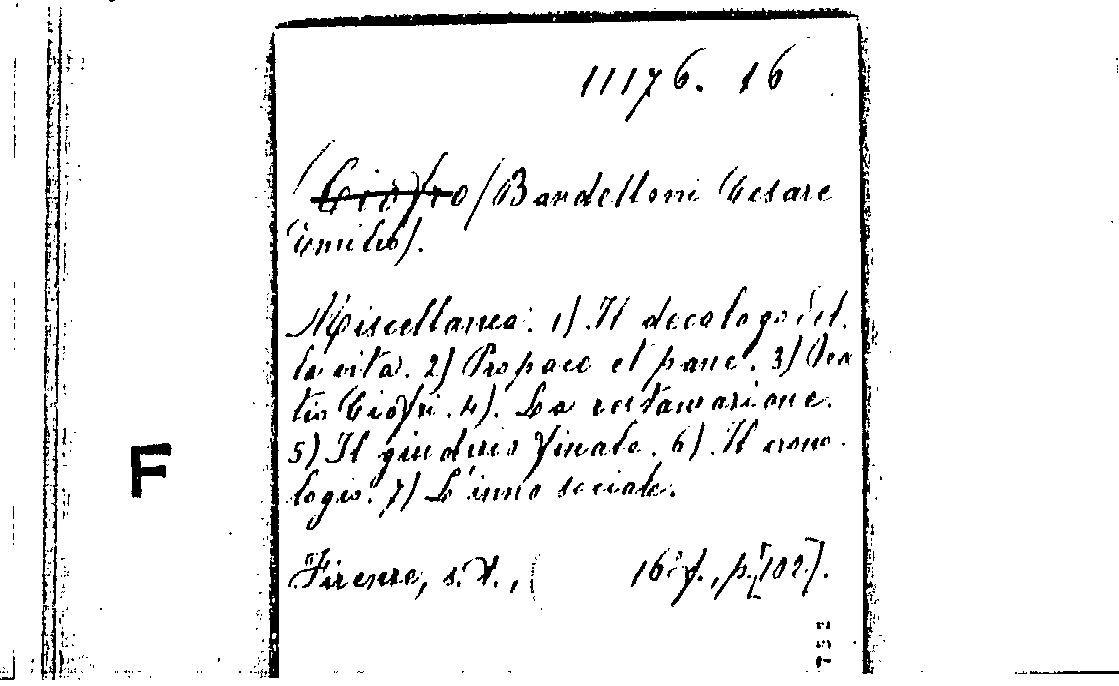 11176. 16
(Ciòfro/Bardelloni Cesare
Emilio).
Miscellanea: 1) Il decalogo del
la vita. 2) Pro pace et pane. 3)
tis Ciòfri. 4). La restaurazione.
5) Il giudizio finale. 6) Il crono
logio. 7) L'inno sociale.
F
Firenze, s.t., 16° f., p.[102].
752